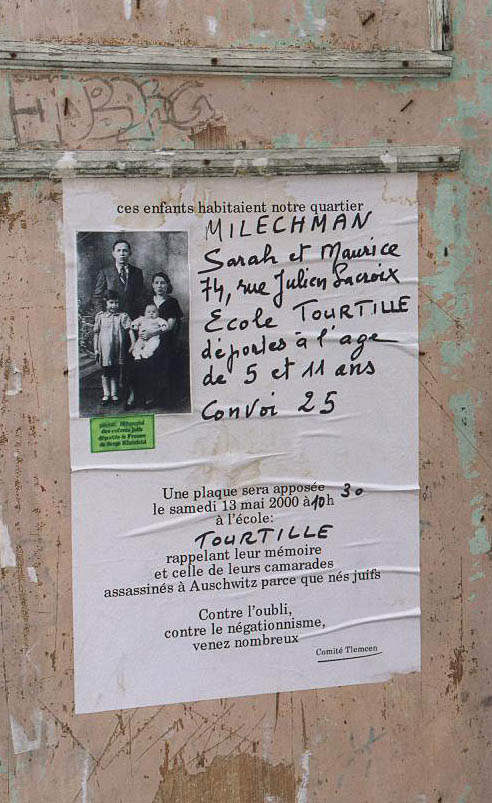 ces enfants habitaient notre quartier
MILECHMAN
Sarah et Maurice
74, rue Julien Lacroix
Ecole TOURTILLE
déportés à l'age
de 5 et 11 ans
Convoi 25
des enfants juifs
déportés de France
de Serge Klarsfeld
Une plaque sera apposée
le samedi 13 mai 2000 à 10h 30
à l'école:
TOURTILLE
rappelant leur mémoire
et celle de leurs camarades
assassinés à Auschwitz parce que nés juifs
Contre l'oubli,
contre le négationnisme,
venez nombreux
Comité Tlemcen